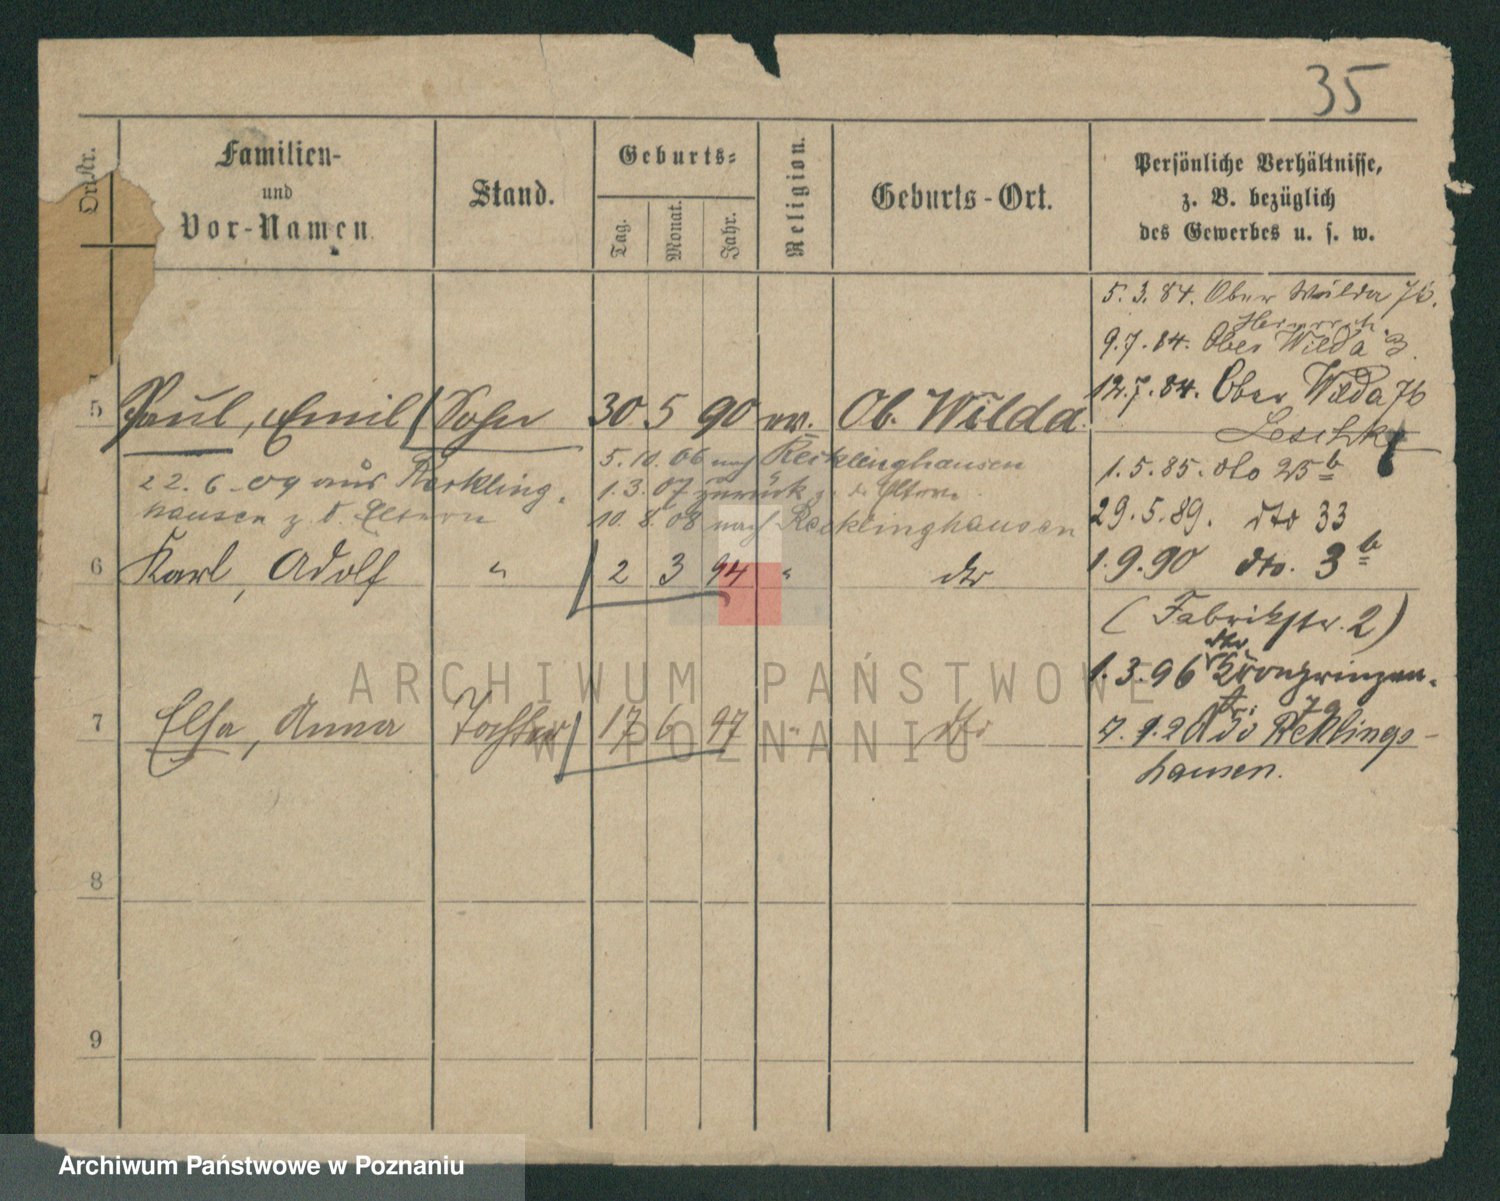 35
Familien-
und
Vor-Namen.
Stand.
Geburts-
Tag.
Monat.
Jahr.
Religion.
Geburts-Ort.
Persönliche Verhältnisse,
z. B. bezüglich
des Gewerbes u. s. w.
5.3.84. Ober Wilda 76.
9.7.84. Ober Wilda 3.
12.7.84. Ober Wilda 76
5 Paul, Emil Sohn 30 5 90 ev. Ob. Wilda.
5.10.06 nach Recklinghausen
22.6.09 aus Reckling-
1.3.07 zurück z. d. Eltern.
hausen z. d. Eltern
10.8.08 nach Recklinghausen
1.5.85. dto 25b
29.5.89. dto 33
6 Karl, Adolf " 2 3 94 " dto
1.9.90 dto. 3b
(Fabrikstr. 2)
1.3.96 Kronprinzen-
str. 79
7 Elsa, Anna Tochter 17 6 97 " dto
Recklings-
hausen.
8
9
ARCHIWUM PAŃSTWOWE
W POZNANIU
Archiwum Państwowe w Poznaniu